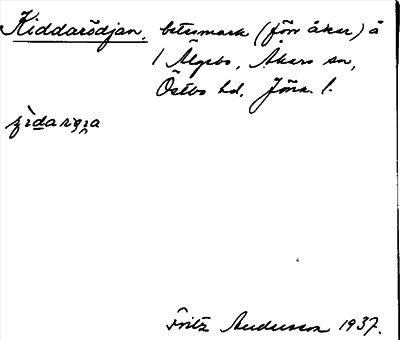 Kiddarödjan, betesmark (förr åker) å
1 Älgebo, Åkers sn,
Östbo hd. Jönk. l.
Fritz Andersson 1937.